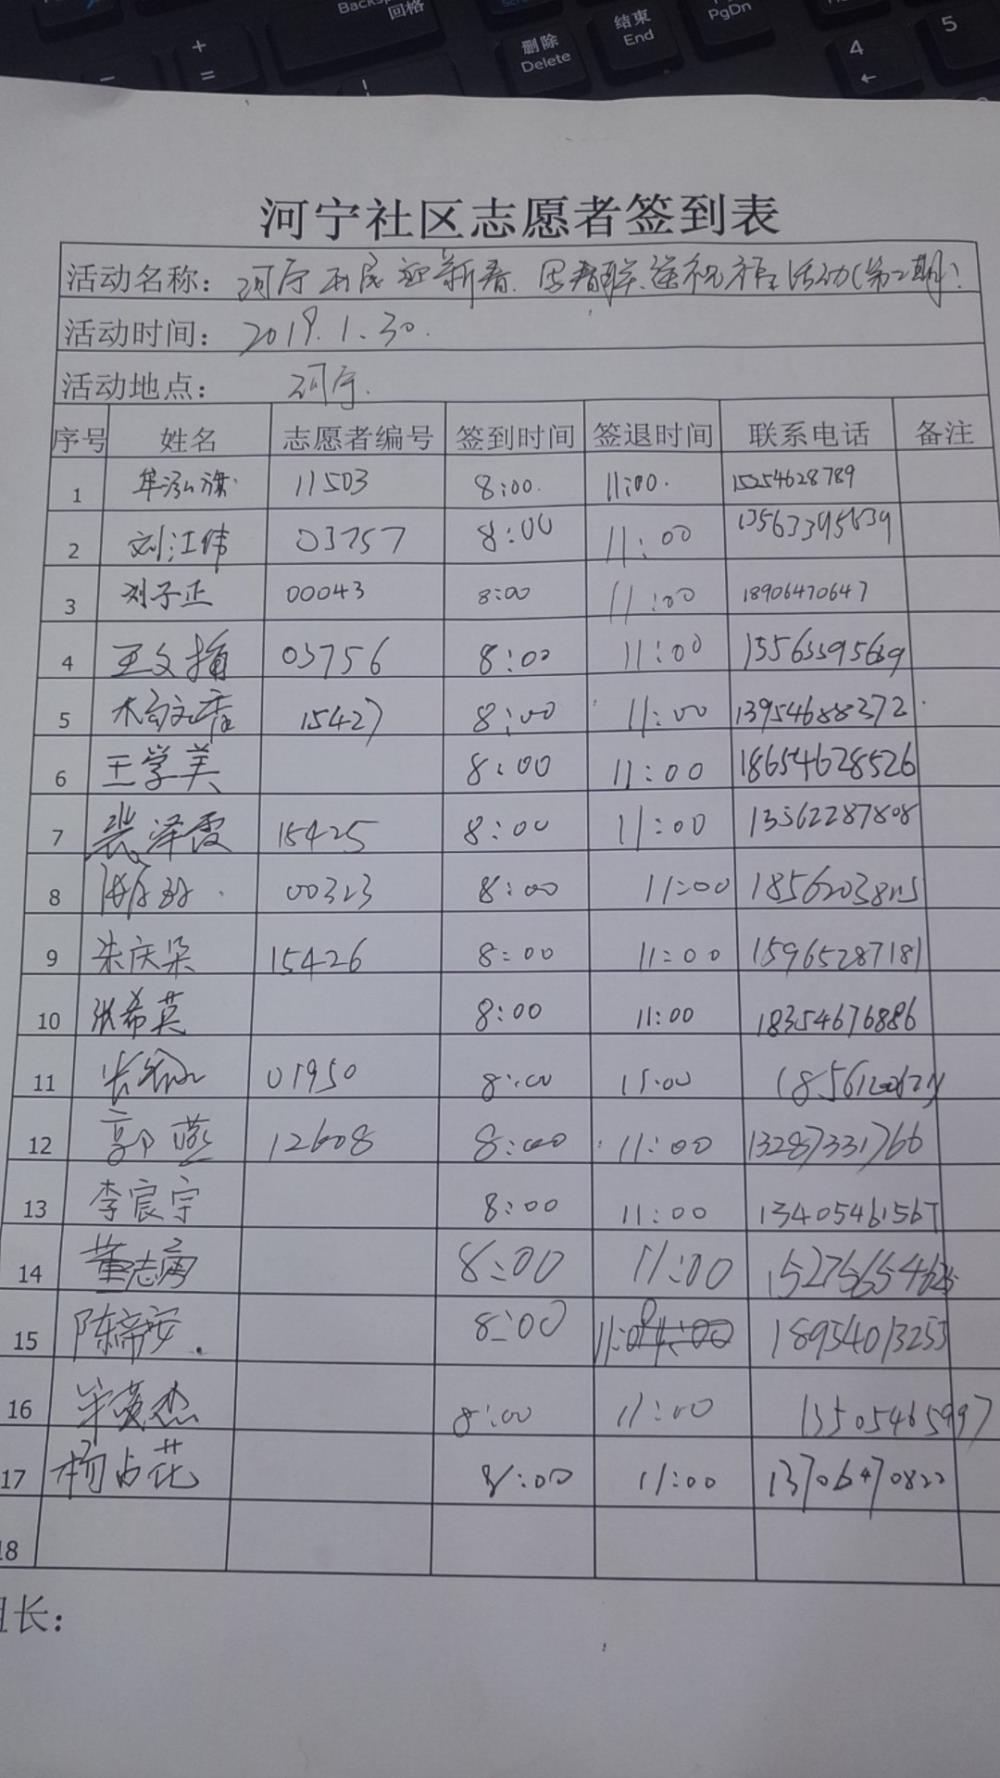 Backsp 回格
+
=
-
!
删除
Delete
结束
End
PgDn
4
←
5
河宁社区志愿者签到表
活动名称：河宁 迎新春 春联 送祝福 活动(第二期)
活动时间：2019.1.30.
活动地点：河宁.
序号 姓名 志愿者编号 签到时间 签退时间 联系电话 备注
1 11503 8:00. 11:00. 15254628789
2 刘江伟 03757 8:00 11:00 13563395639
3 刘子正 00043 8:00 11:00 18906470647
4 王文梅 03756 8:00 11:00 15563395639
5 15427 8:00 11:00 13954688372
6 王学美 8:00 11:00 18654628526
7 裴泽霞 15425 8:00 11:00 13562287808
8 00323 8:00 11:00
9 朱庆朵 15426 8:00 11:00 15965287181
10 张希英 8:00 11:00 18354676886
11 01950 8:00 11:00
12 郭燕 12608 8:00 11:00 13287331766
13 李宸宇 8:00 11:00 13405461567
14 董志 8:00 11:00
15 陈帝安. 8:00 18954013253
16 8:00 11:00 13505465997
17 杨占花 8:00 11:00 13706470822
18
组长：